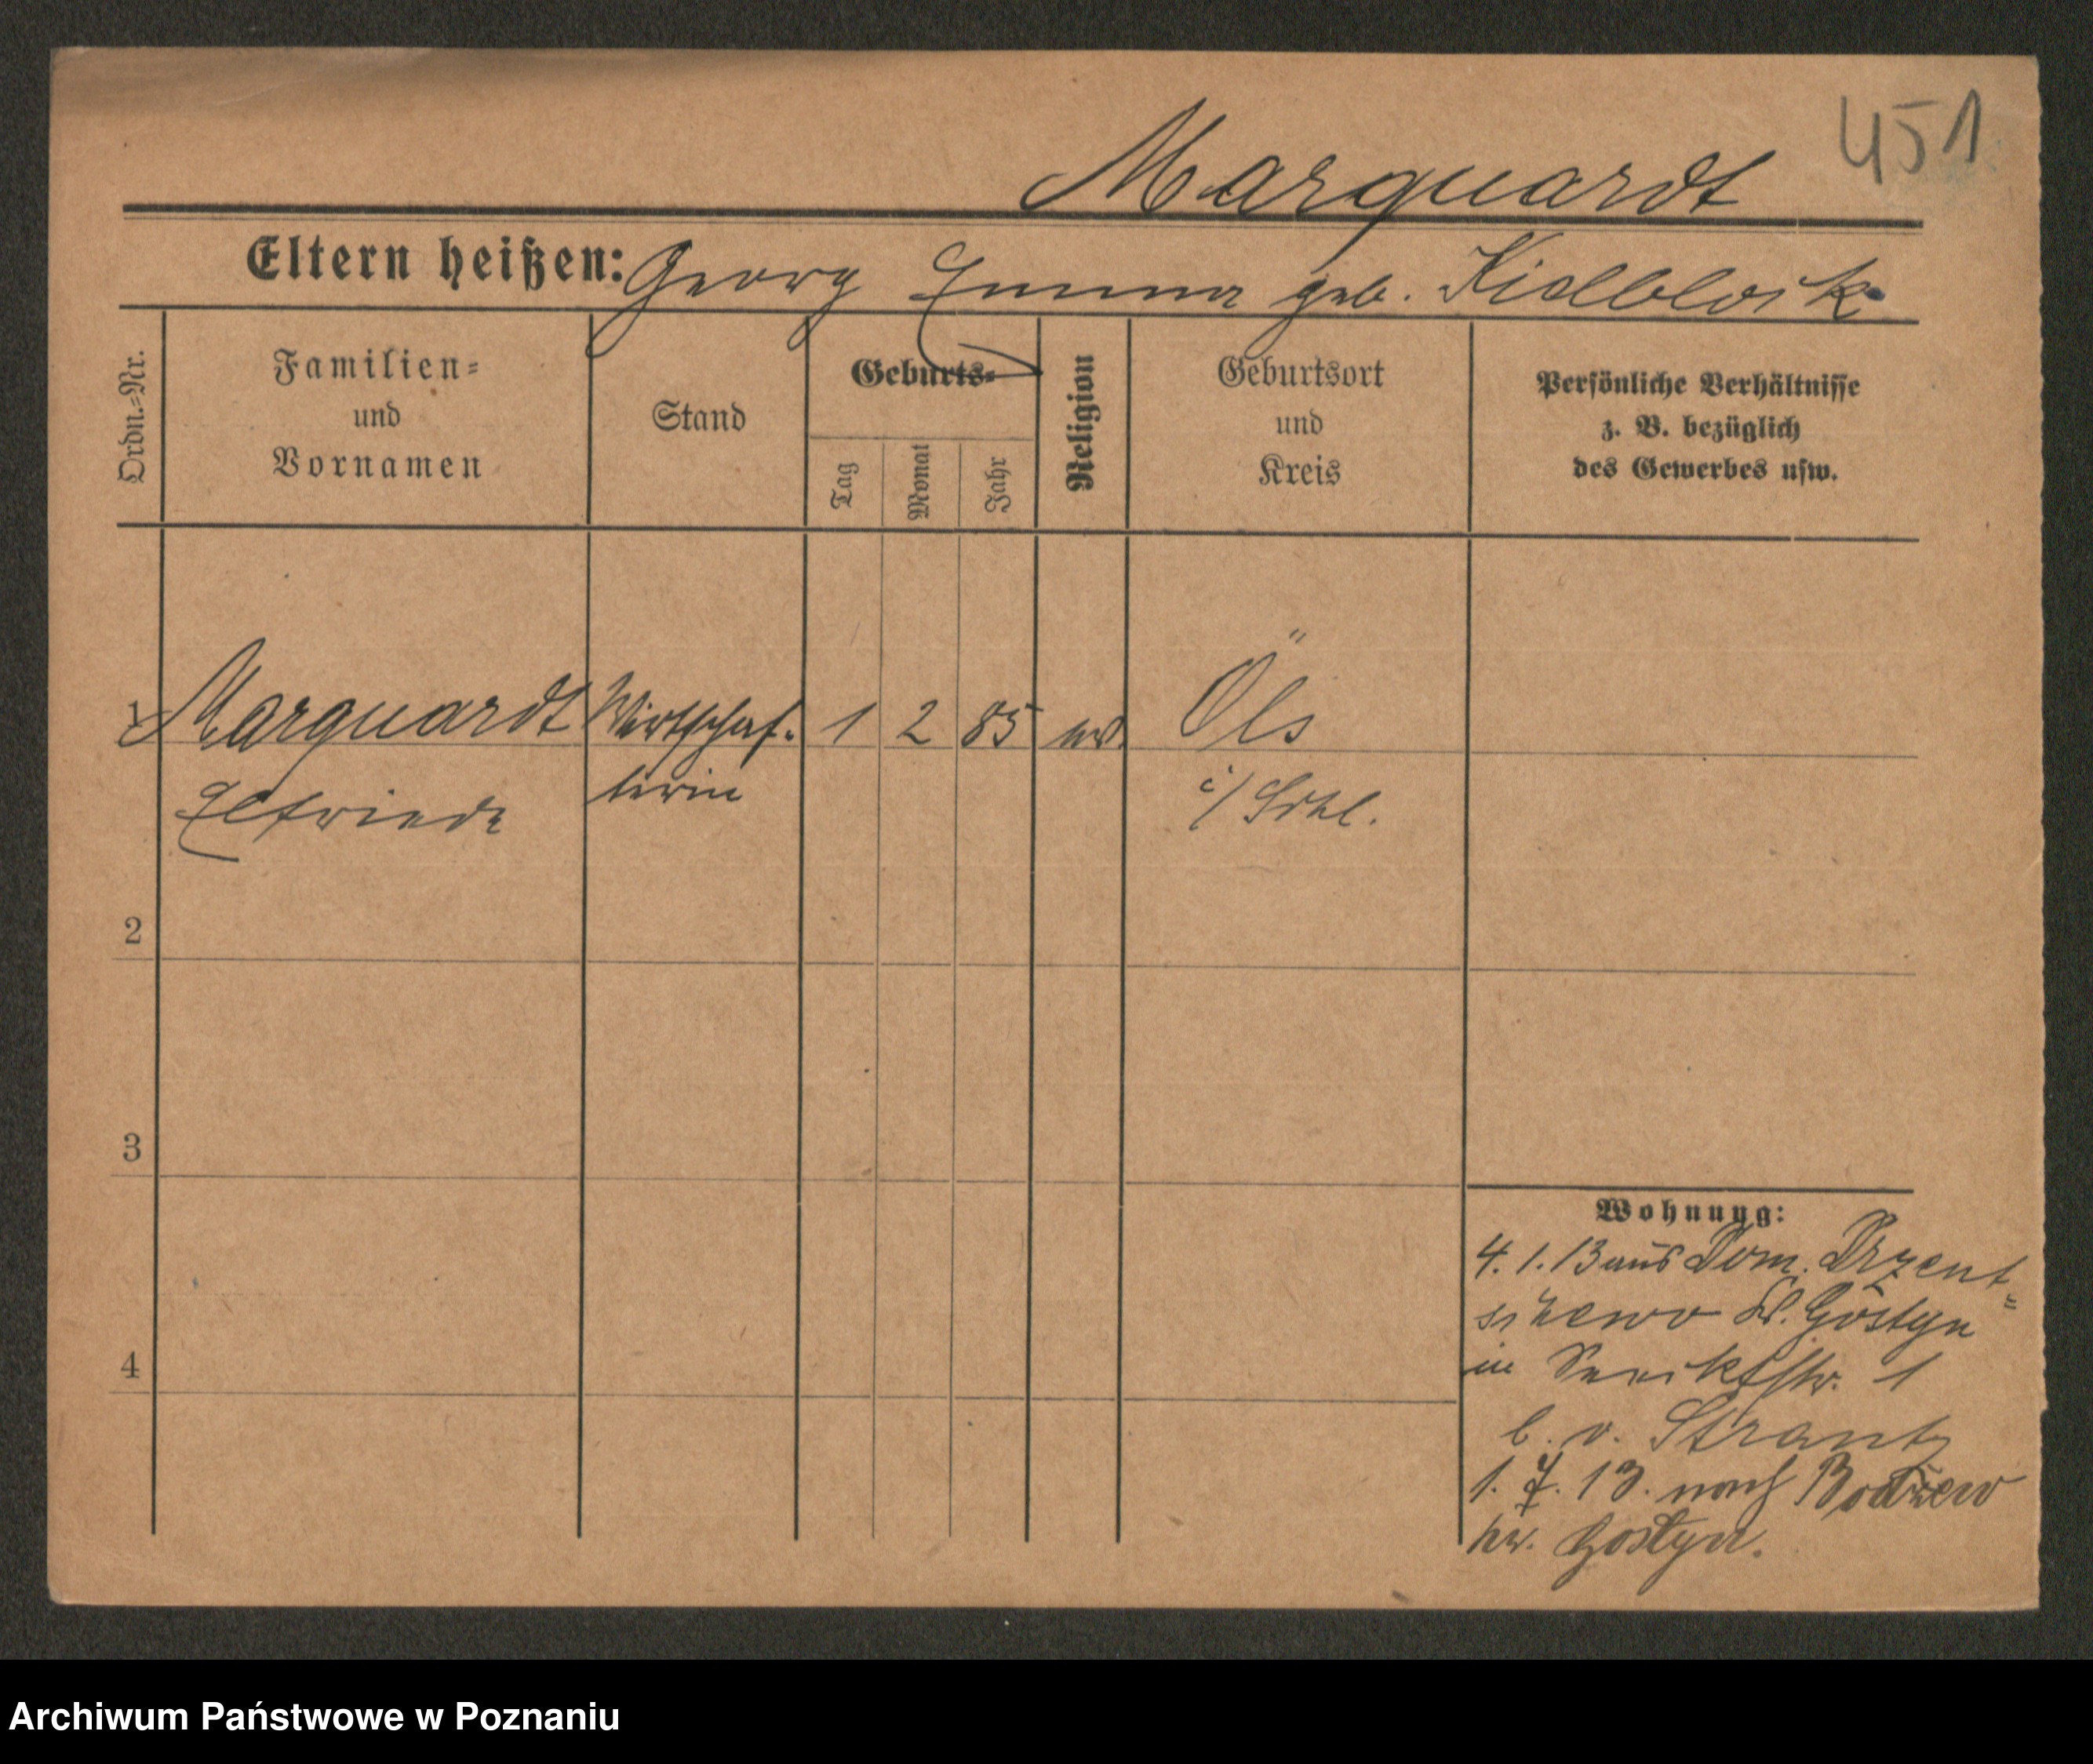 451
Marquardt
Eltern heißen: Georg Emma geb.
Ordn.=Nr.
Familien=
und
Vornamen
Stand
Geburts=
Tag
Monat
Jahr
Religion
Geburtsort
und
Kreis
Persönliche Verhältnisse
z. B. bezüglich
des Gewerbes usw.
1 Marquardt Wirtschaf- 1 2 85 ev. Öls
Elfriede terin i/ Schl.
2
3
4
Wohnung:
4. 1. 13 aus Dom. Drzent=
schewo Kr. Gostyn
in 1
b. v. Strantz
1. 7. 13. nach Bodzew
kr. Gostyn.
Archiwum Państwowe w Poznaniu